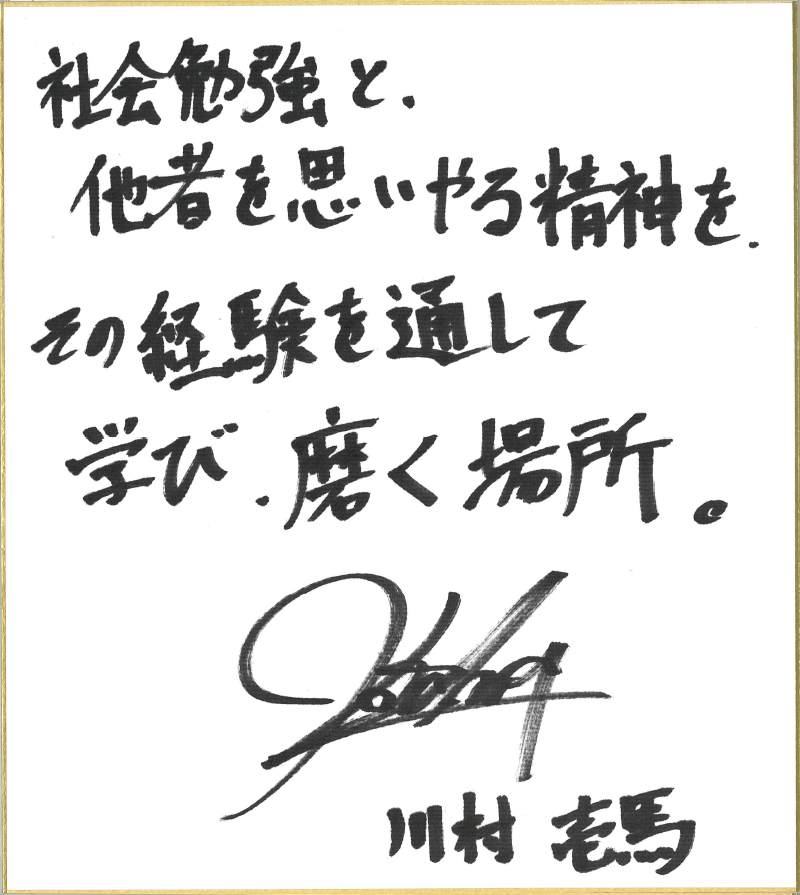 社会勉強と、
他者を思いやる精神を、
その経験を通して
学び、磨く場所。
川村 壱馬